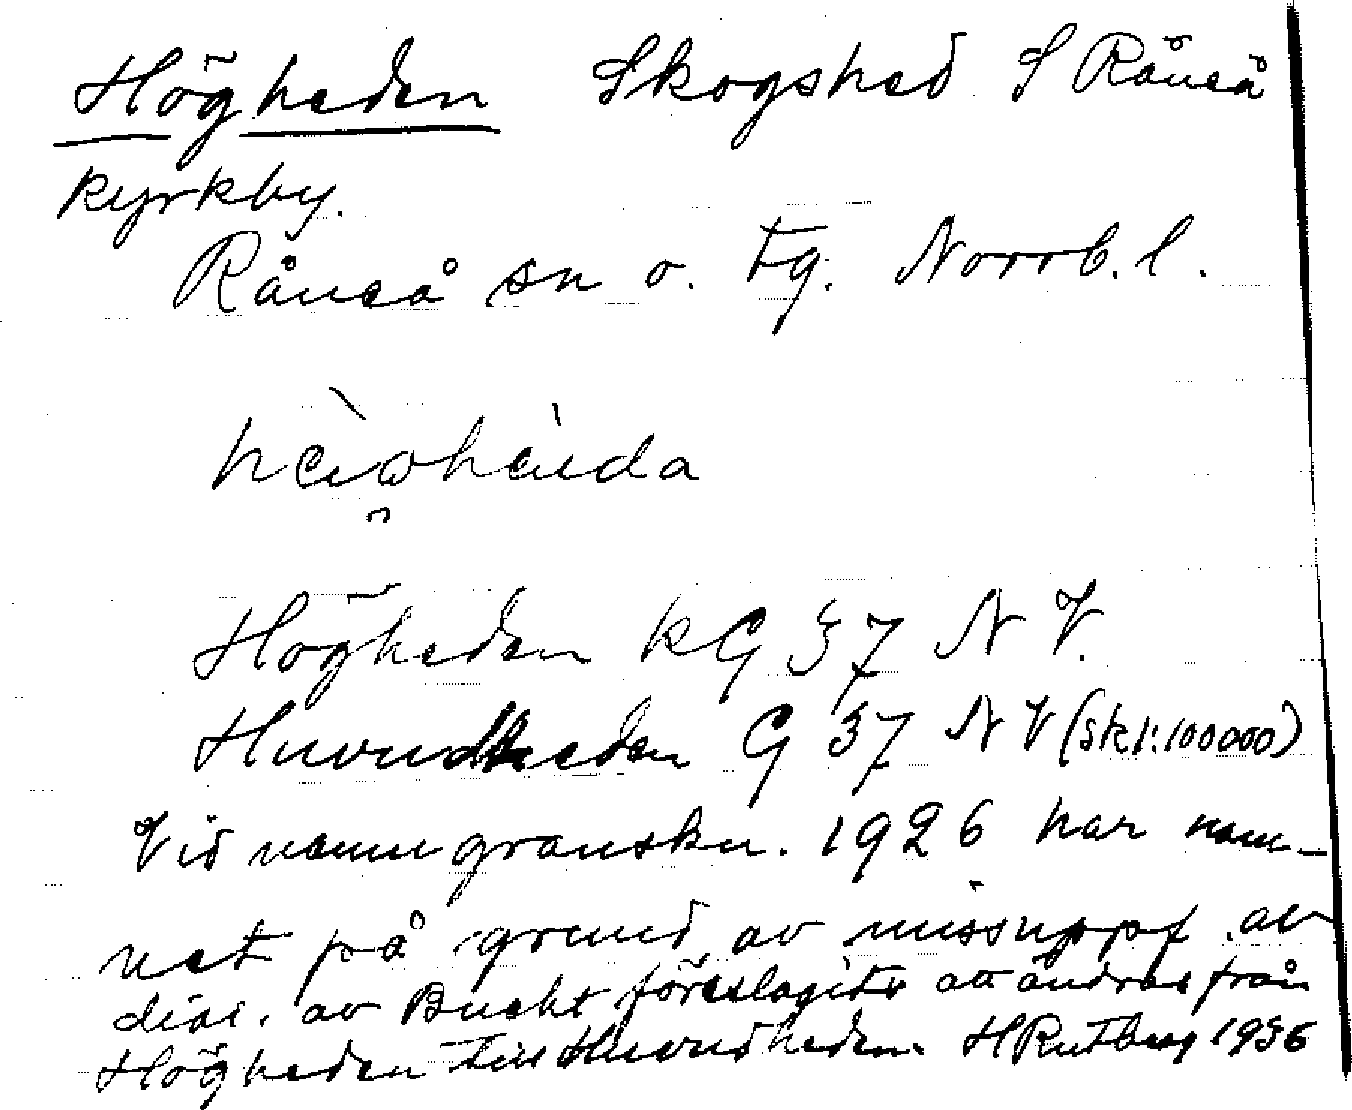 Högheden Skogshed S Råneå
kyrkby.
Råneå sn o. tg. Norrb. l.
Högheden kG 37 N V.
Huvudheden G 37 N V (sk 1:100000)
Vid namngranskn. 1926 har nam-
net på grund av missuppf. av
dial. av Bucht föreslagits att ändras från
Högheden till Huvudheden. H Rutberg 1936